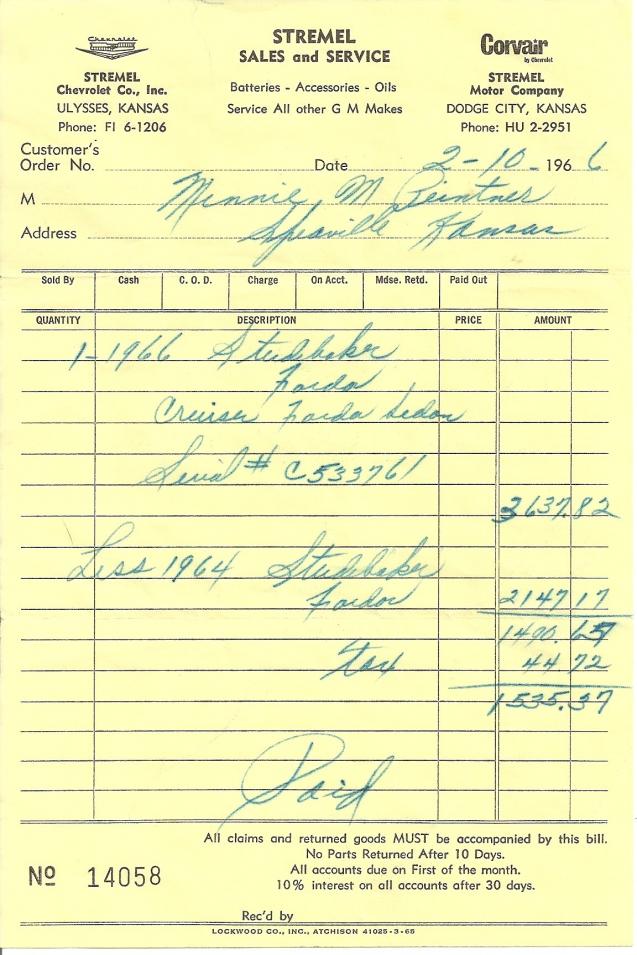 Chevrolet
STREMEL
Chevrolet Co., Inc.
ULYSSES, KANSAS
Phone: FI 6-1206
STREMEL
SALES and SERVICE
Batteries - Accessories - Oils
Service All other G M Makes
Corvair
by Chevrolet
STREMEL
Motor Company
DODGE CITY, KANSAS
Phone: HU 2-2951
Customer's
Order No. Date 2-10-1966
M Minnie M Reintner
Address Spearville Kansas
Sold By Cash C. O. D. Charge On Acct. Mdse. Retd. Paid Out
QUANTITY DESCRIPTION PRICE AMOUNT
1-1966 Studebaker
Fordor
Cruiser Fordor Sedan
Serial # C533761
3637.82
Less 1964 Studebaker
Fordor 2147 17
1490.65
tax 44 72
1535.37
Paid
All claims and returned goods MUST be accompanied by this bill.
No Parts Returned After 10 Days.
All accounts due on First of the month.
10% interest on all accounts after 30 days.
No 14058
Rec'd by
LOCKWOOD CO., INC., ATCHISON 41025-3-65